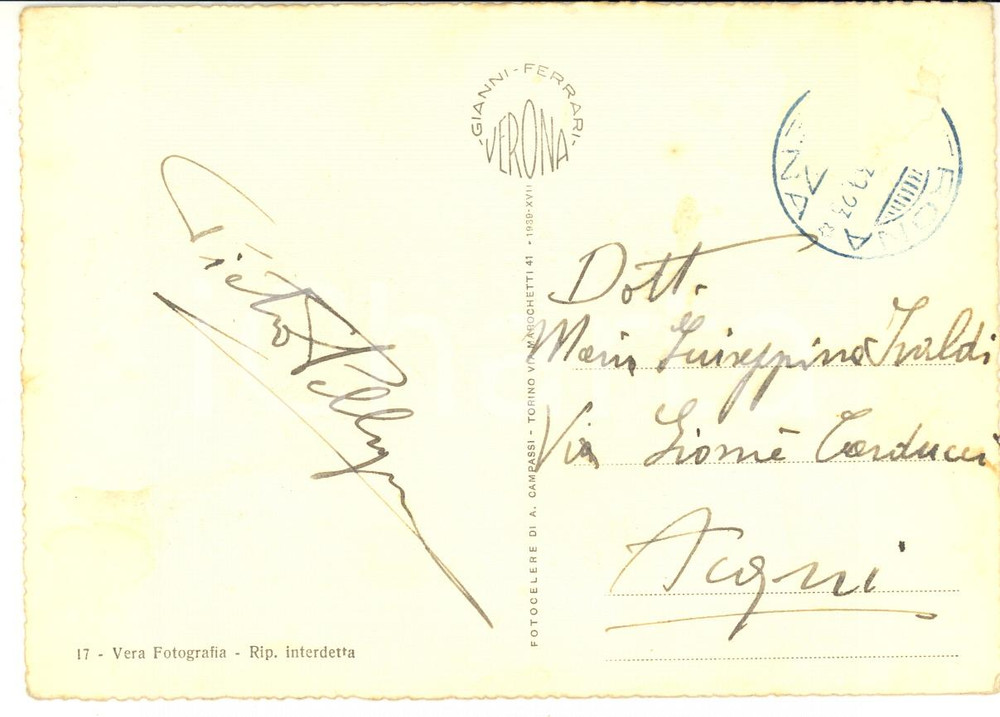 -GIANNI-FERRARI-
VERONA
Pietro
Dott.
Maria Giuseppina Ivaldi
Via Giosuè Carducci
Acqui
FOTOCELERE DI A. CAMPASSI - TORINO VIA MAROCHETTI 41 - 1939-XVII
17 - Vera Fotografia - Rip. interdetta